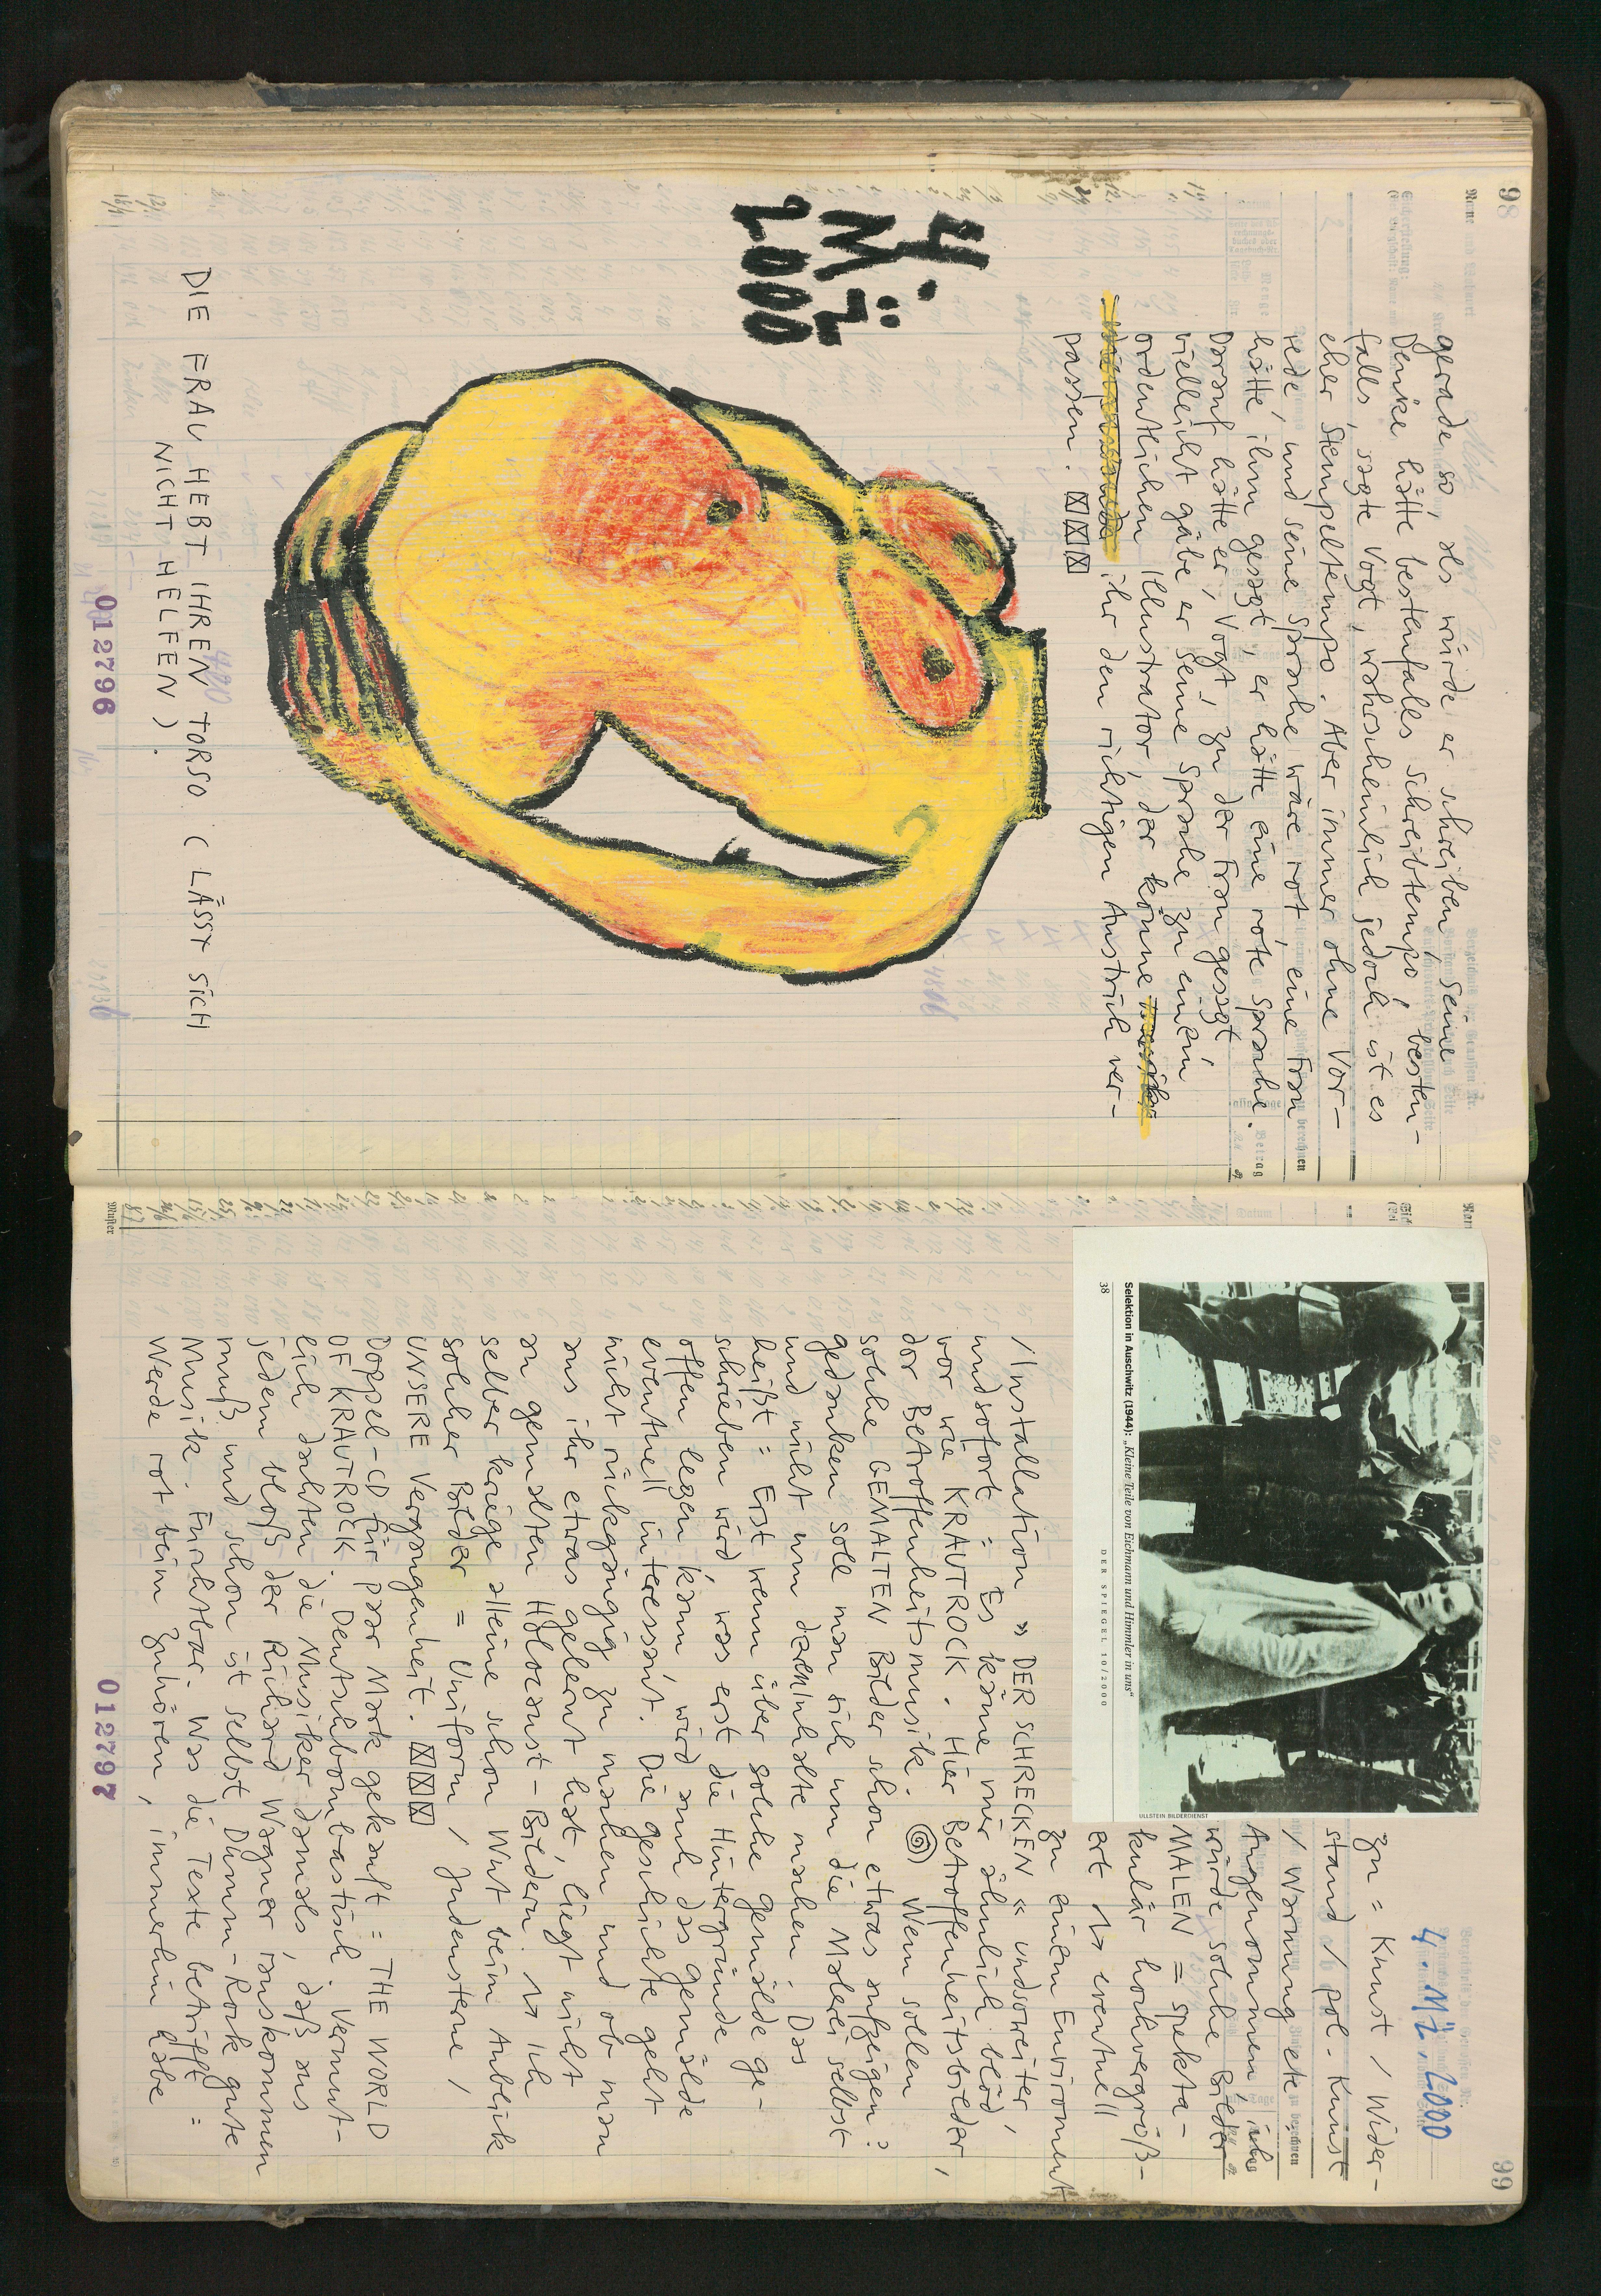 98
gerade so, als würde er schreiben, seine
Denke hätte bestenfalls schreibtempo, besten-
falls, sagte Vogt, wahrscheinlich jedoch ist es
eher Stempeltempo. Aber immer ohne Vor-
rede, und seine Sprache wäre rot, eine Frau
hätte ihm gesagt, er hätte eine rote Sprache.
Darauf hätte er, Vogt, zu der Frau gesagt
vielleicht gäbe er seine Sprache zu einem
ordentlichen Illustrator, der könne
ihr den richtigen Anstrich ver-
passen.
4.
MÄ
2000
DIE FRAU HEBT IHREN TORSO (LÄSST SICH
NICHT HELFEN).
012796
99
4. MÄ. 2000
Selektion in Auschwitz (1944): „Kleine Teile von Eichmann und Himmler in uns“
38
DER SPIEGEL 10/2000
ULLSTEIN BILDERDIENST
zu = Kunst / Wider-
stand / pol. Kunst
/ Warnung etc =
Angenommen, ich
würde solche Bilder
MALEN = spekta-
kulär hochvergröß-
ert eventuell
zu einem Enviroment
/ Installation » DER SCHRECKEN « undsoweiter,
undsofort = Es käme mir ähnlich blöd
vor wie KRAUTROCK. Hier Betroffenheitsbilder,
dor Betroffenheitsmusik. Wem sollen
solche GEMALTEN Bilder schon etwas aufzeigen?
gedanken soll man sich um die Malerei selbst
und nicht um deren Inhalte machen. Das
heißt = Erst wenn über solche Gemälde ge-
schrieben wird, was erst die Hintergründe
offen legen kann, wird auch das Gemälde
eventuell interessant. Die Geschichte geht
nicht rückgängig zu machen und ob man
aus ihr etwas gelernt hat, liegt nicht
an gemalten Holocaust-Bildern. Ich
selber kriege alleine schon Wut beim Anblick
solcher Bilder = Uniform / Judensterne /
UNSERE Vergangenheit.
Doppel-CD für paar Mark gekauft = THE WORLD
OF KRAUTROCK. Deutschbombastisch. Vermut-
lich dachten die Musiker damals, daß aus
jedem bloß der Richard Wagner rauskommen
muß und schon ist selbst Dumm-Rock gute
Musik. Furchtbar. Was die Texte betrifft =
Werde rot beim Zuhören, immerhin habe
012797
Muster